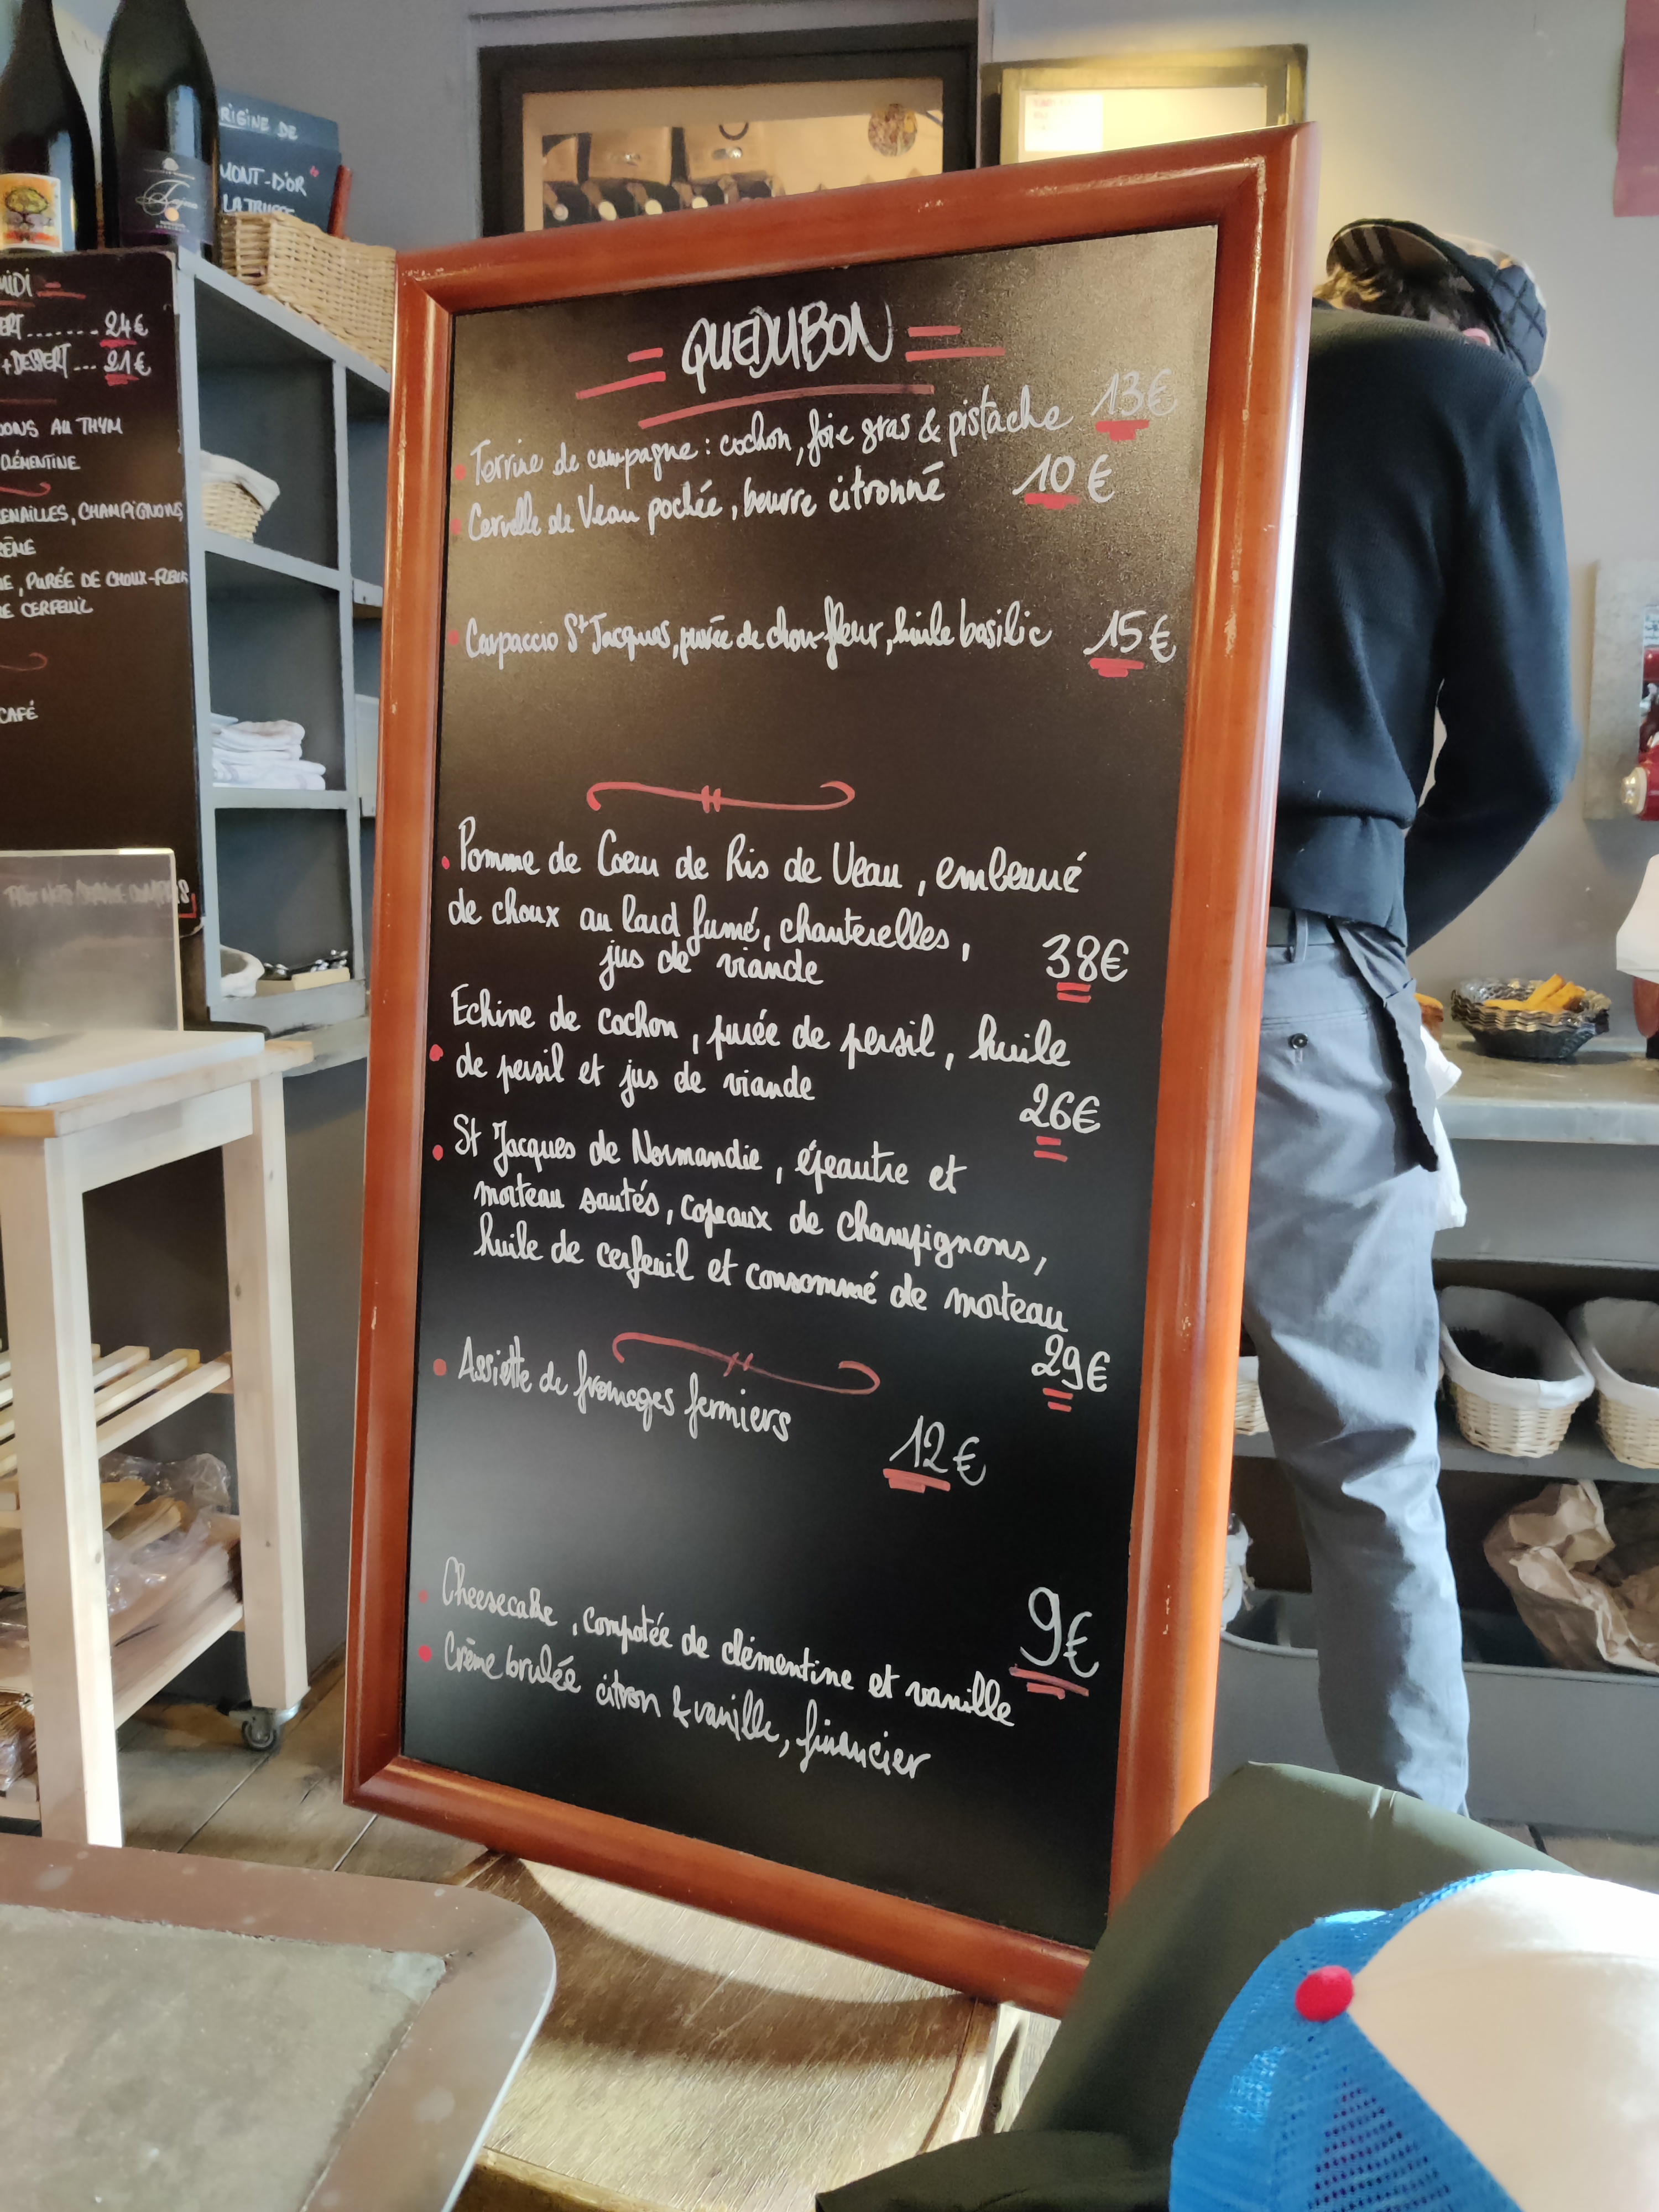 RIGINE DE
MONT-D'OR
LA TRUFFE
MIDI
24€
+DESSERT... 21€
AU THYM
CLÉMENTINE
ENAILLES, CHAMPIGNONS,
RÈME
E, PURÉE DE CHOUX-FLEUR
E CERFEUIL
CAFÉ
QUEDUBON
Terrine de campagne : cochon, foie gras & pistache 13€
Cervelle de Veau pochée, beurre citronné 10€
Carpaccio St Jacques, purée de chou-fleur, huile basilic 15€
Pomme de Coeur de Ris de Veau, embeurré
de choux au lard fumé, chanterelles,
jus de viande 38€
Echine de cochon, purée de persil, huile
de persil et jus de viande 26€
St Jacques de Normandie, épeautre et
morteau sautés, copeaux de champignons,
huile de cerfeuil et consommé de morteau
29€
Assiette de fromages fermiers
12€
Cheesecake, compotée de clémentine et vanille 9€
Crème brulée citron & vanille, financier